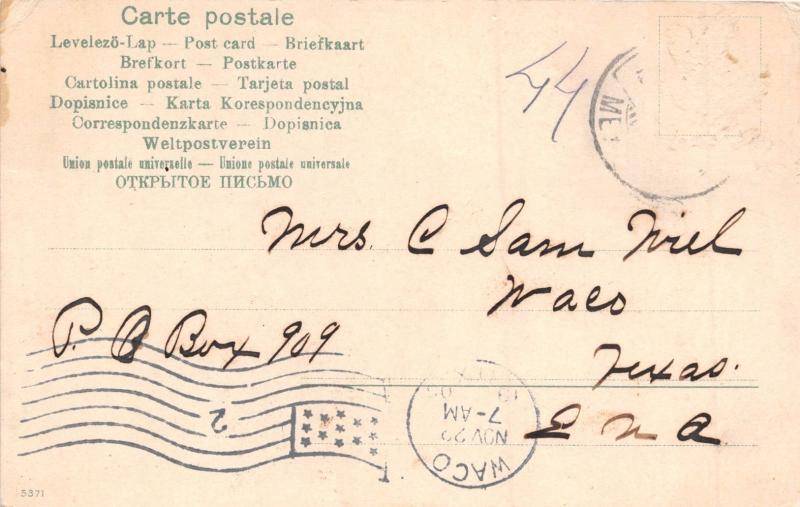 Carte postale
Levelező-Lap — Post card — Briefkaart
Brefkort — Postkarte
Cartolina postale — Tarjeta postal
Dopisnice — Karta Korespondencyjna
Correspondenzkarte — Dopisnica
Weltpostverein
Union postale universelle — Unione postale universale
ОТКРЫТОЕ ПИСЬМО
44
Mrs. C Sam Wiel
Waco
P. O Box 909
Texas.
E U A
2
WACO
NOV 22
7-AM
TEX
5371